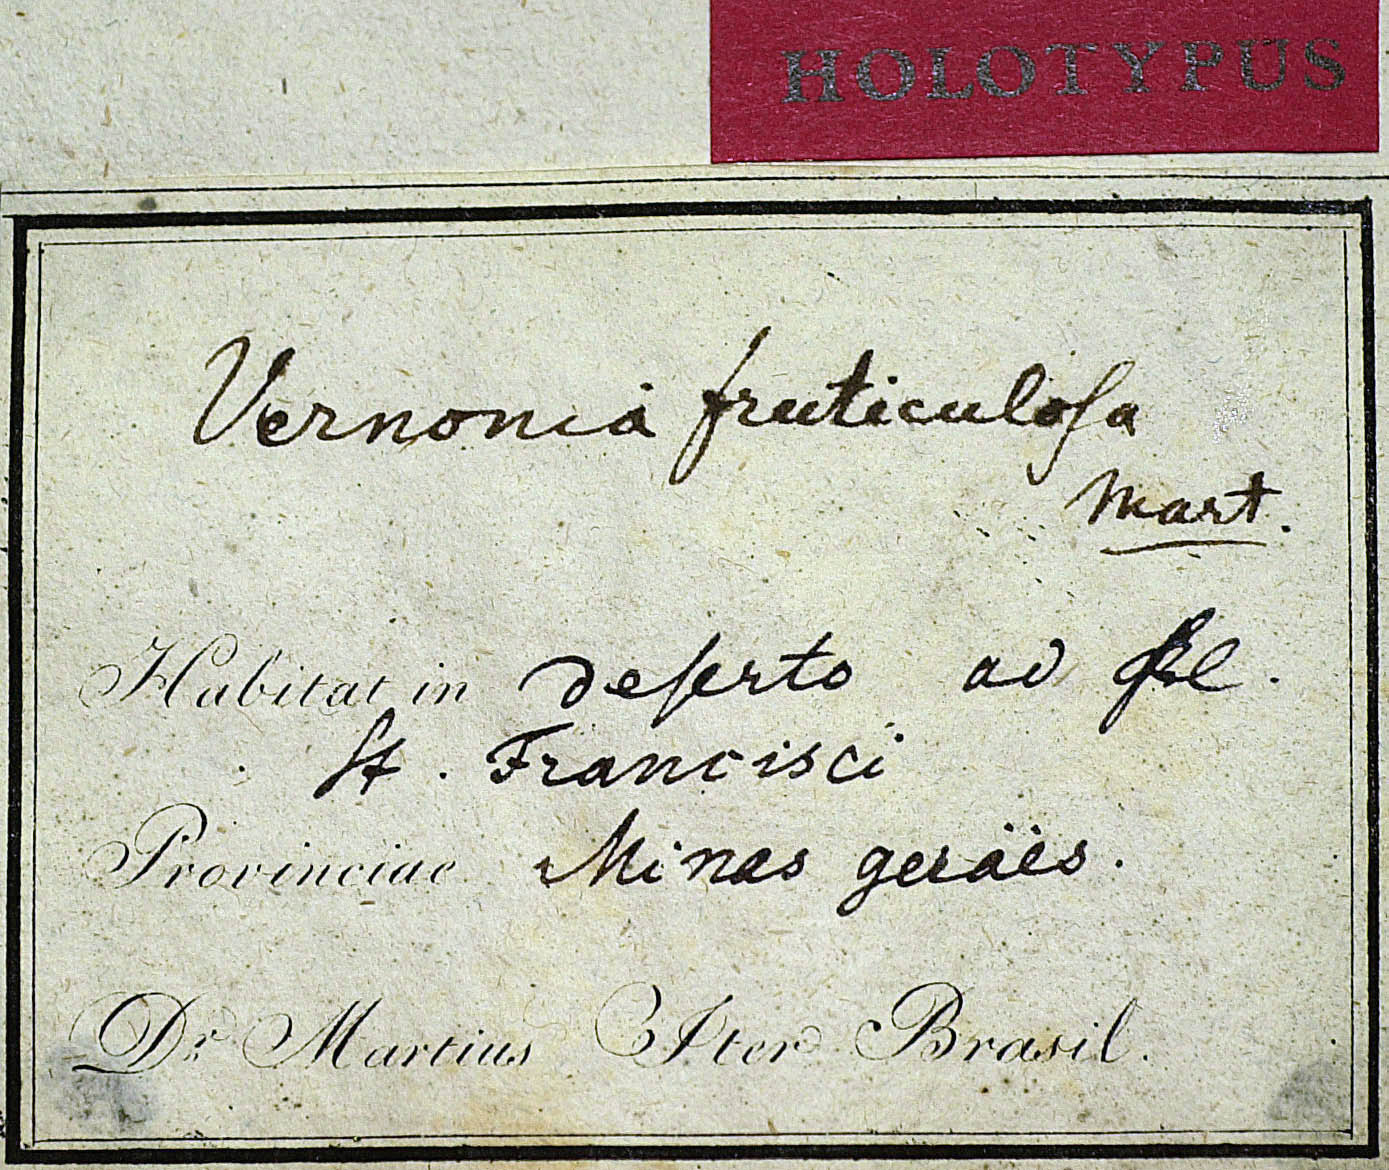 HOLOTYPUS
Vernonia fruticuloſa
Mart.
Habitat in deſerto ad fl.
St. Francisci
Provinciae Minas geraës.
Dr. Martius Iter Brasil.